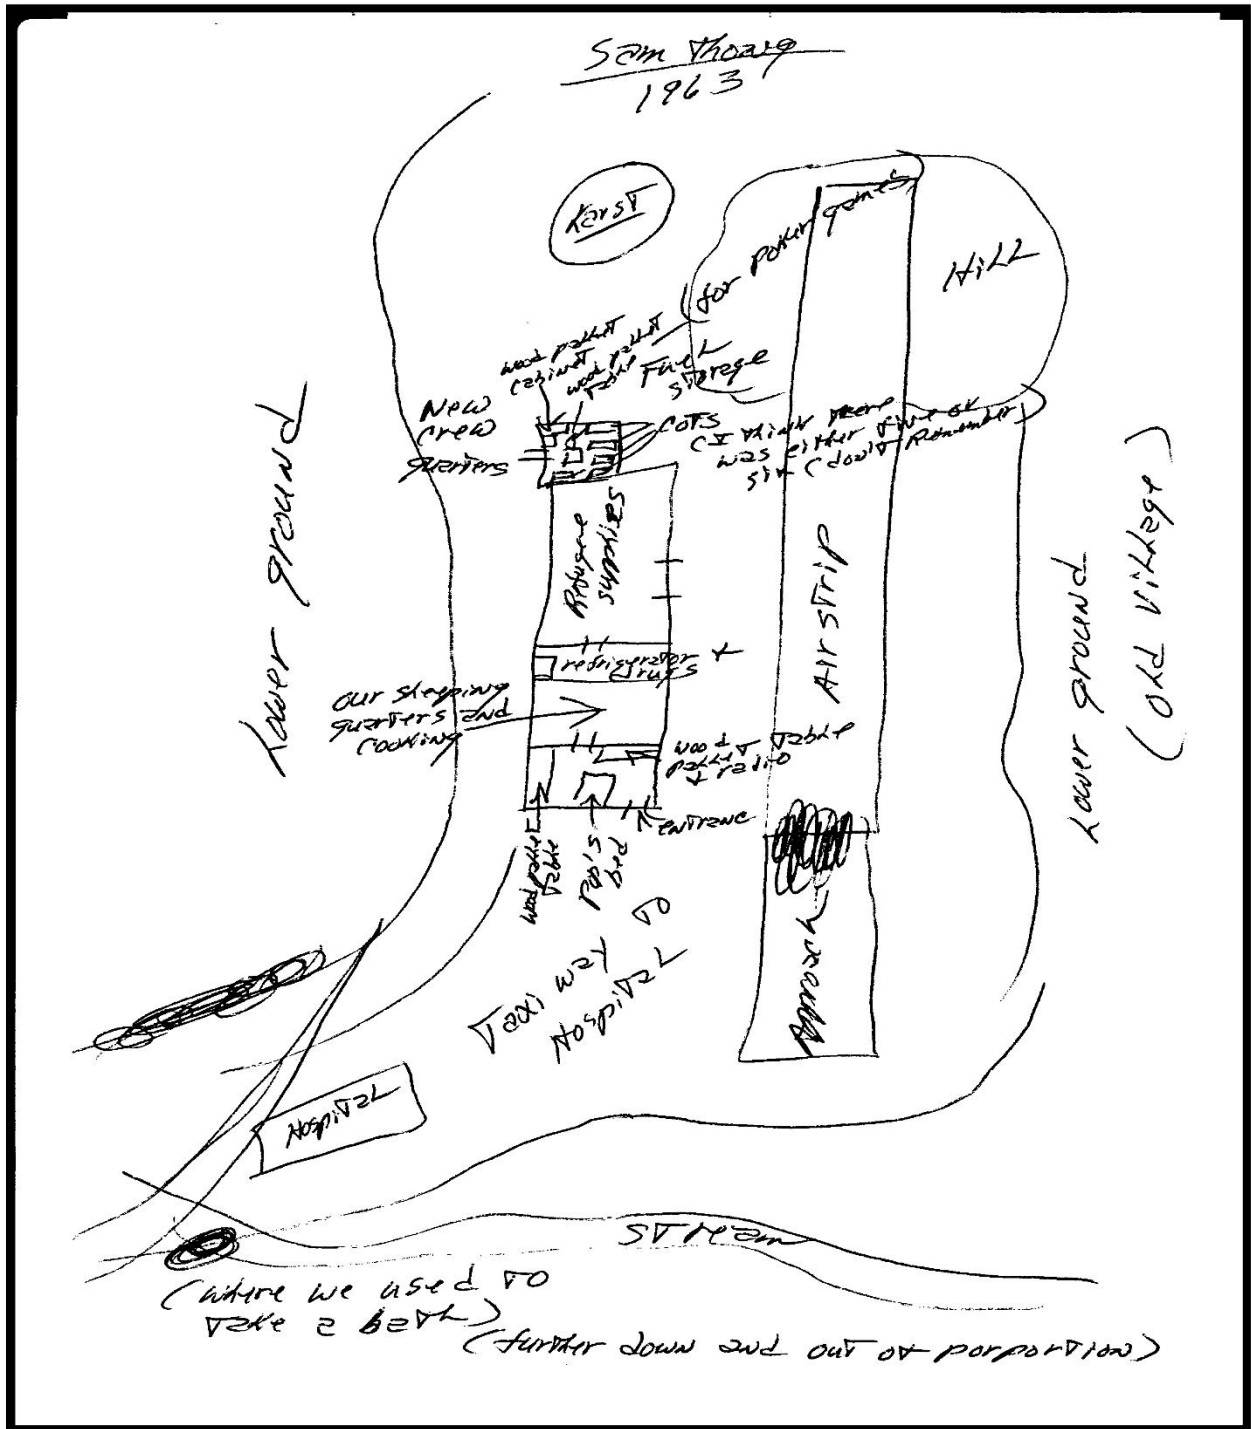 Sam Thong
1963
Karst
Hill
(for poker games)
wood pallet
cabinet
wood pallet
table
Fuel
storage
New
crew
quarters
COTS
(I think there
was either five or
six (don't Remember)
Lower ground
Refugee
supplies
Airstrip
Lower ground
(old village)
refrigerator +
drugs
our sleeping
quarters and
cooking
wood
pallet table
+ radio
entrane
wood pallet
table
Pop's
bed
Approach
Taxi way to
Hospital
Hospital
Stream
(where we used to
take a bath)
(further down and out of porportion)